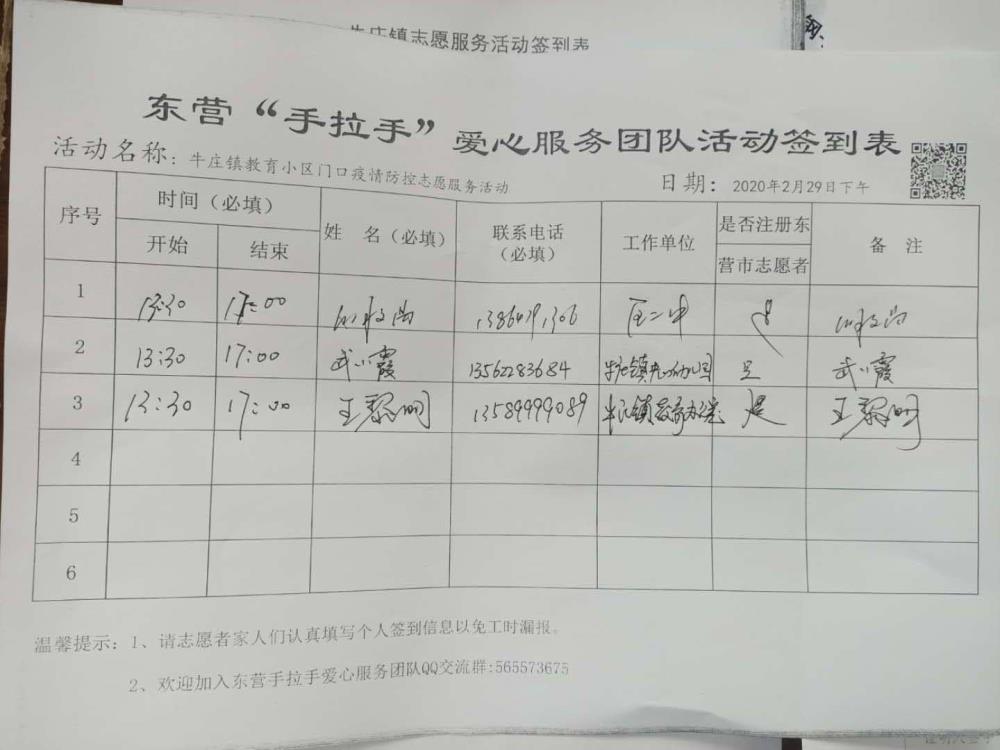 牛庄镇志愿服务活动签到表
东营“手拉手”爱心服务团队活动签到表
活动名称：牛庄镇教育小区门口疫情防控志愿服务活动
日期：2020年2月29日下午
序号 时间（必填） 姓 名（必填） 联系电话（必填） 工作单位 是否注册东营市志愿者 备 注
开始 结束
1 13:30 17:00 是
2 13:30 17:00 武小霞 13562283684 牛庄镇中心幼儿园 是 武小霞
3 13:30 17:00 王黎明 13589999089 牛庄镇教育办公室 是 王黎明
4
5
6
温馨提示：1、请志愿者家人们认真填写个人签到信息以免工时漏报。
2、欢迎加入东营手拉手爱心服务团队QQ交流群:565573675